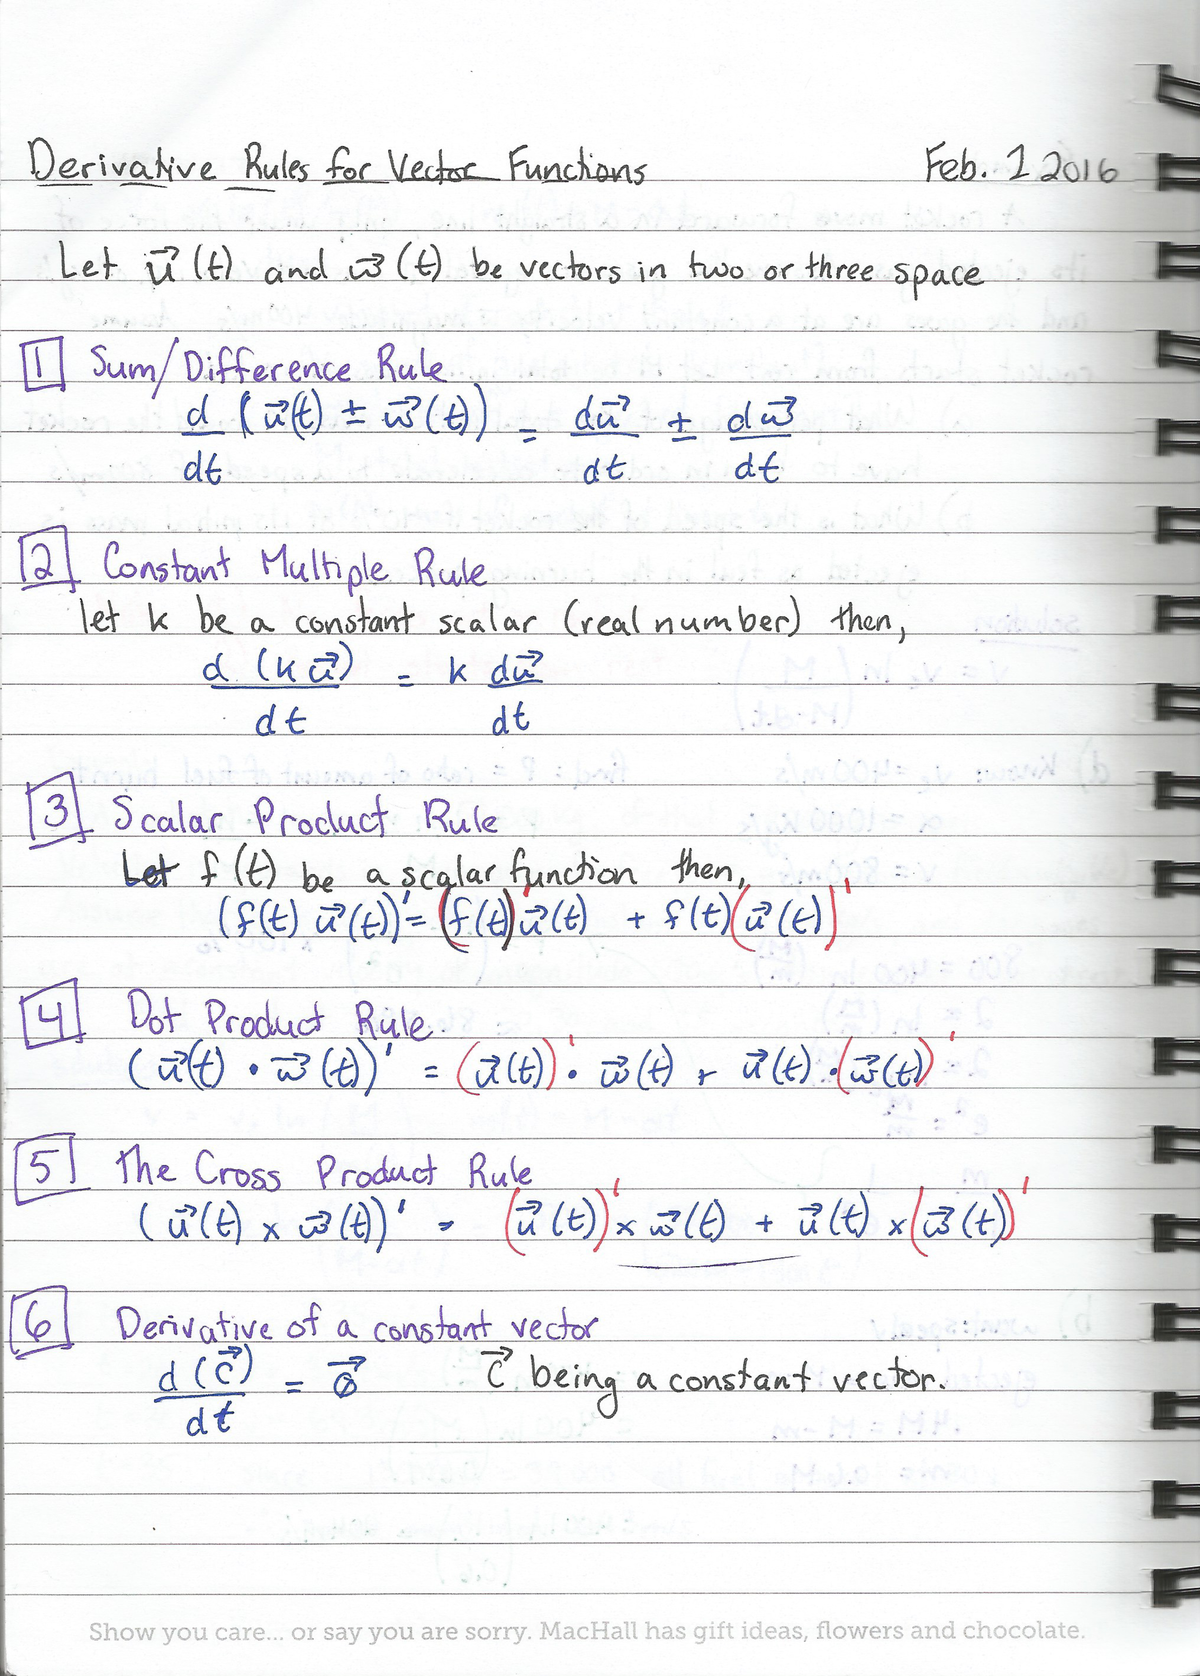 Derivative Rules for Vector Functions Feb. 1 2016
Let u⃗(t) and w⃗(t) be vectors in two or three space
1 Sum/Difference Rule
d/dt (u⃗(t) ± w⃗(t)) = du⃗/dt ± dw⃗/dt
2 Constant Multiple Rule
let k be a constant scalar (real number) then,
d(k u⃗)/dt = k du⃗/dt
3 Scalar Product Rule
Let f(t) be a scalar function then,
(f(t) u⃗(t))' = (f(t))' u⃗(t) + f(t)(u⃗(t))'
4 Dot Product Rule
(u⃗(t) • w⃗(t))' = (u⃗(t))' • w⃗(t) + u⃗(t) • (w⃗(t))'
5 The Cross Product Rule
(u⃗(t) × w⃗(t))' = (u⃗(t))' × w⃗(t) + u⃗(t) × (w⃗(t))'
6 Derivative of a constant vector
d(c⃗)/dt = 0⃗ c⃗ being a constant vector.
Show you care... or say you are sorry. MacHall has gift ideas, flowers and chocolate.